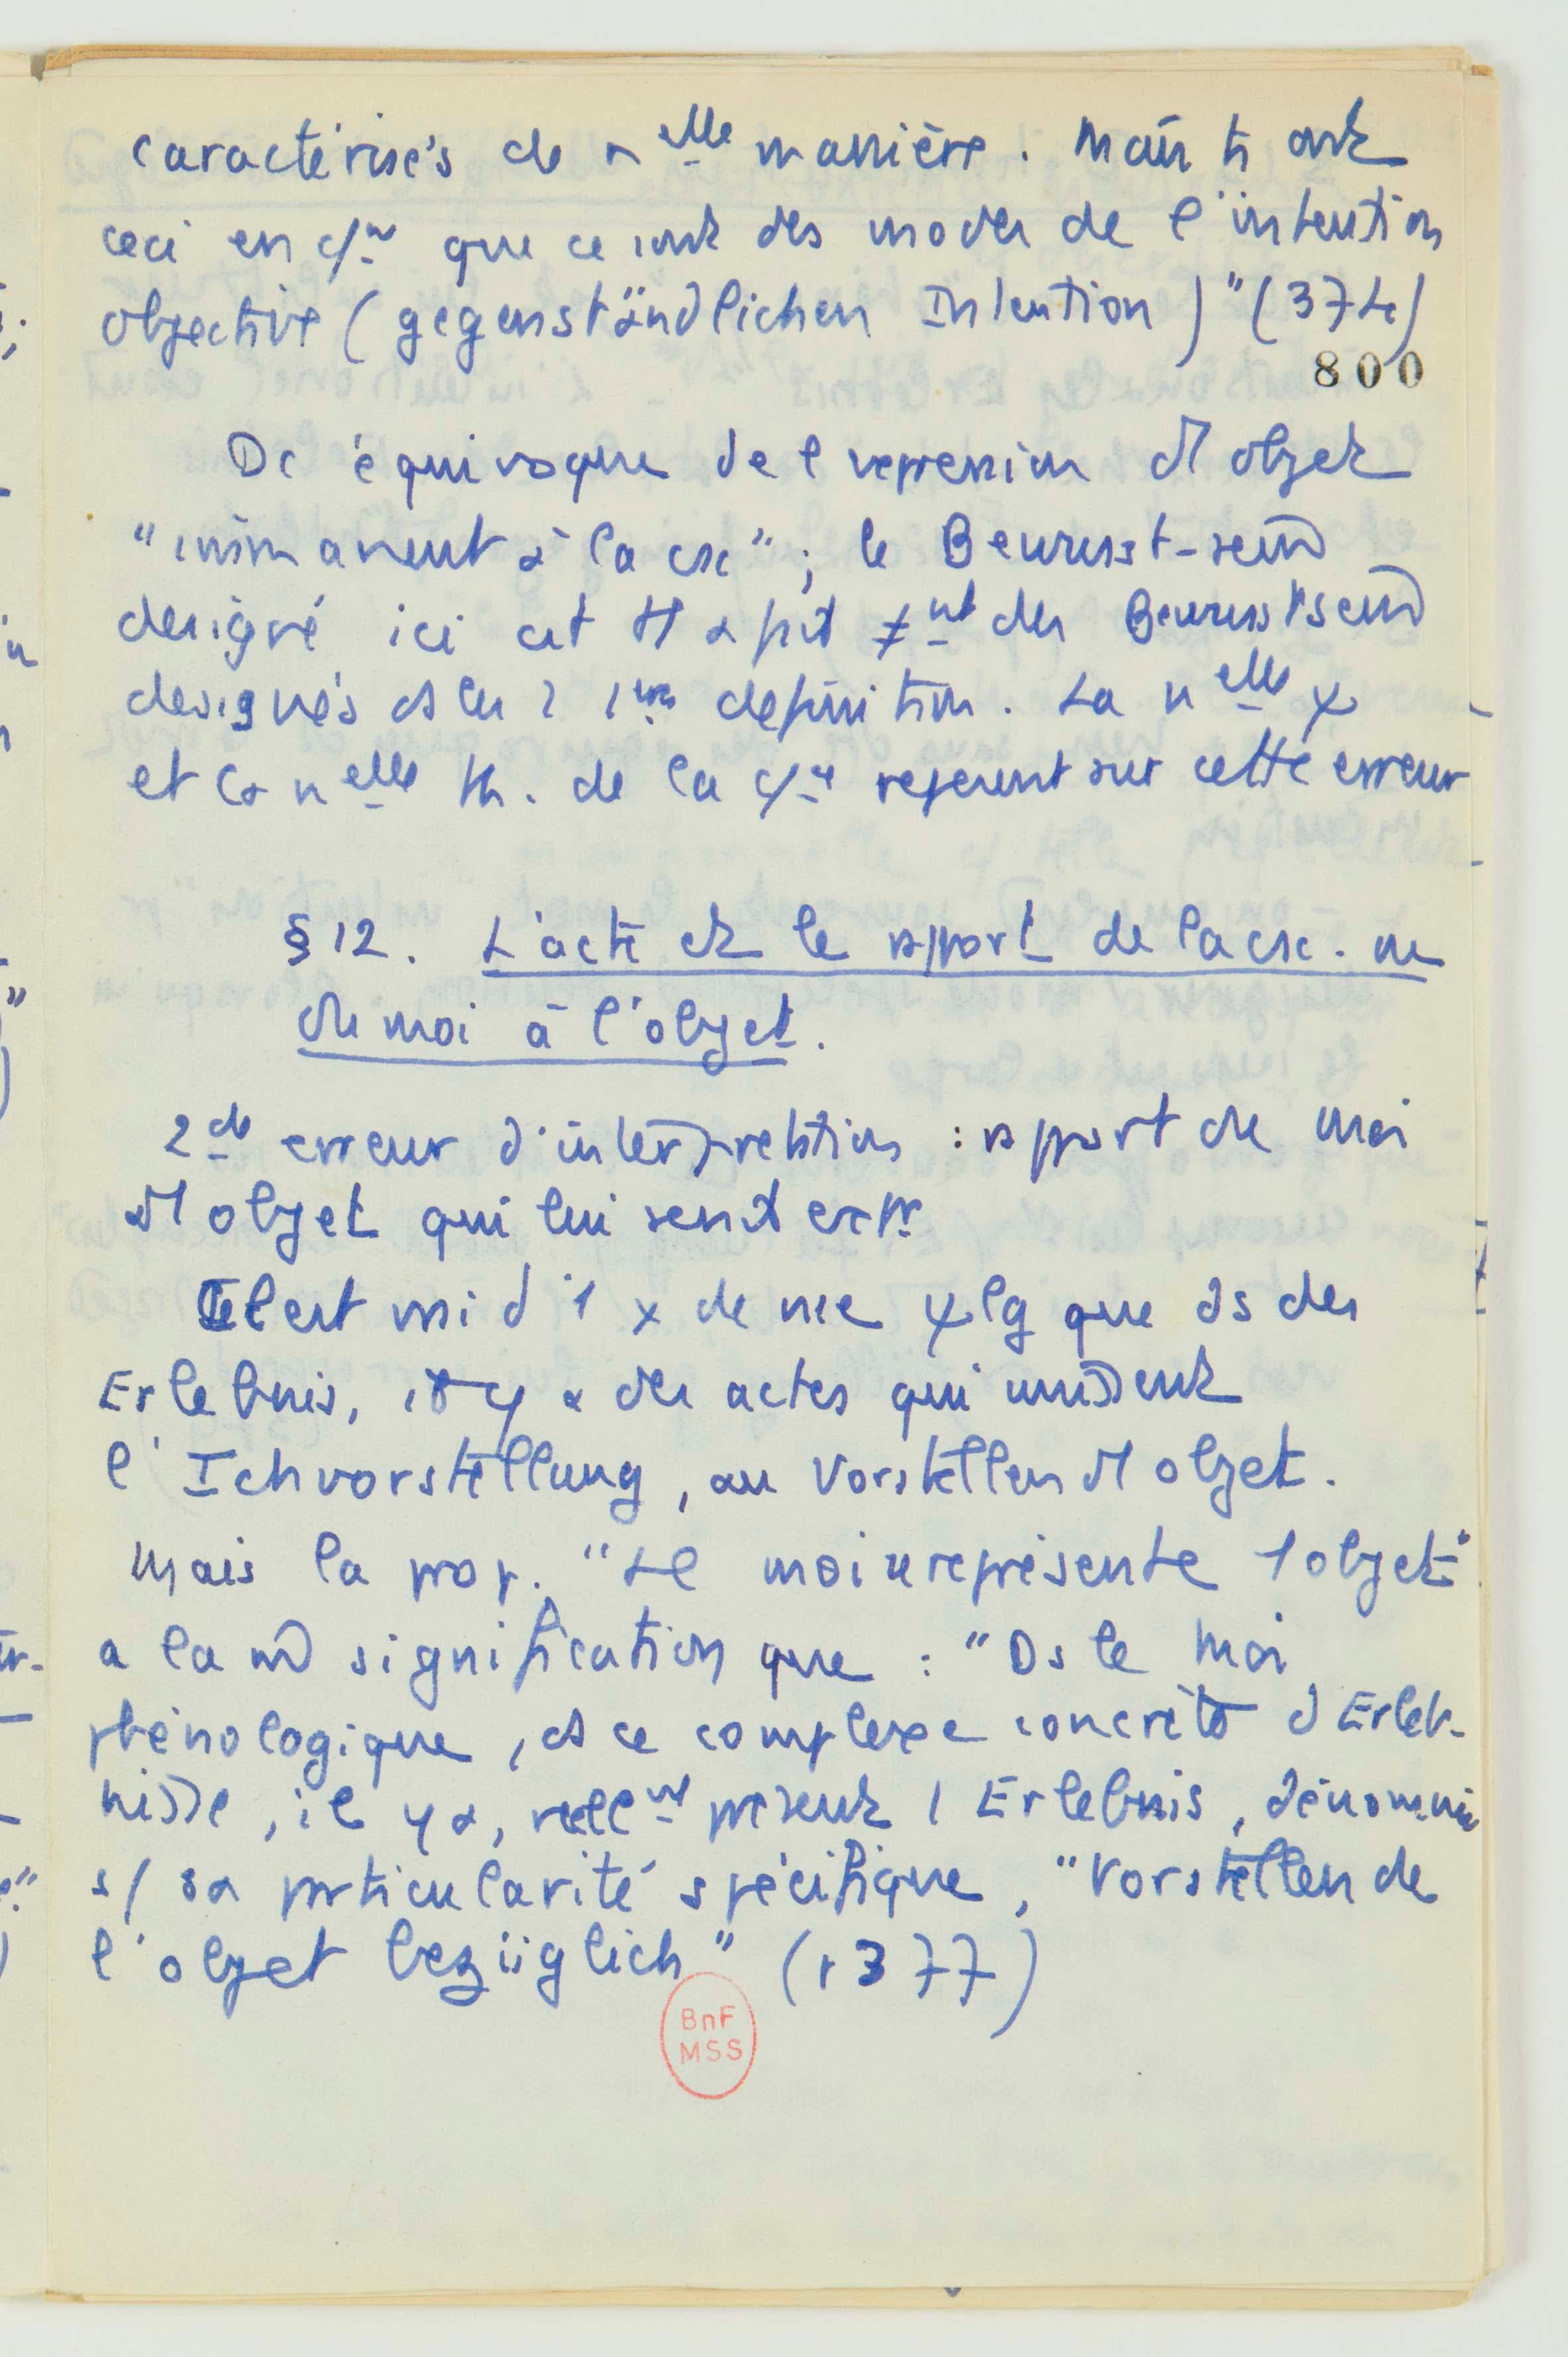 caractérisés de nelle manière. Mais ts ont
ceci en c/m que ce sont des modes de l'intention
objective (gegenständlichen Intention)" (374)
800
Dc équivoque de l'expression d'1 objet
"immanent à la csc" ; le Bewusst-sein
designé ici est tt à fait ≠nt des Bewusstsein
designés ds les 2 1res definition. La nelle
et la nelle th. de la reposent sur cette erreur
§ 12. L'acte et le rapport de la csc. ou
du moi à l'objet.
2de erreur d'interprétation : rapport du moi
à 1 objet qui lui serait
Il est vrai d'1 de vue que ds des
Erlebnis, il y a des actes qui unissent
l'Ichvorstellung, au Vorstellen d'1 objet.
Mais la prop. "Le moi se représente 1 objet"
a la m signification que : "Ds le moi
phénologique, ds ce complexe concrète d'Erleb-
nisse, il y a, réellnt présent 1 Erlebnis, dénommé
s/ sa particularité spécifique, "Vorstellen de
l'objet bezüglich" (p 377)
BnF
MSS